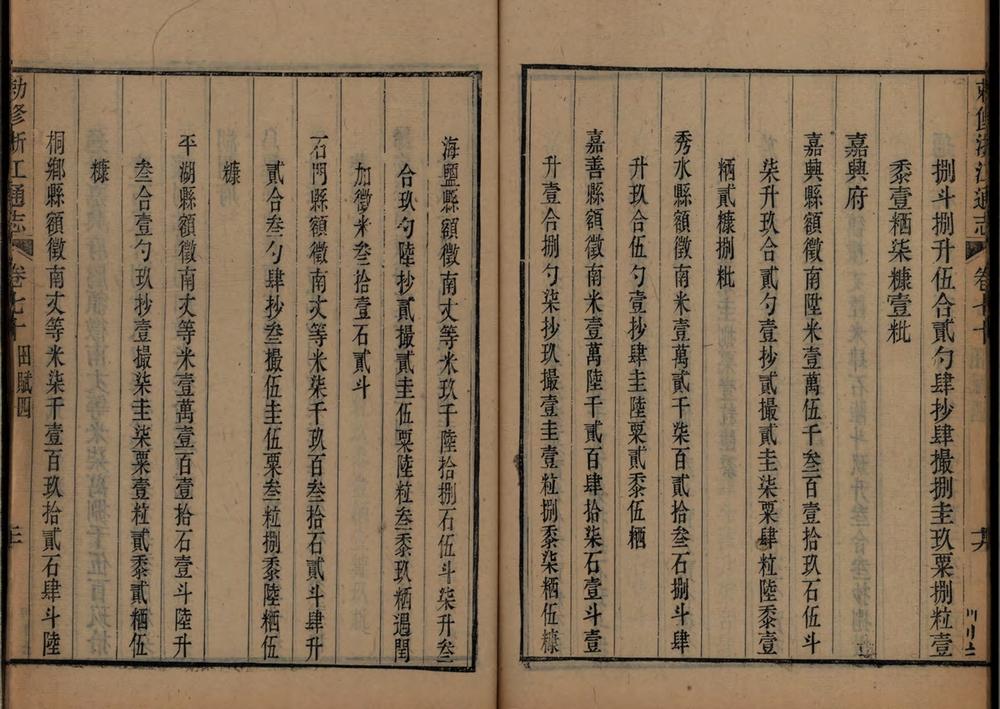 捌斗捌升伍合貳勺肆抄肆撮捌圭玖粟捌粒壹
黍壹粞柒糠壹粃
嘉興府
嘉興縣額徵南陞米壹萬伍千叁百壹拾玖石伍斗
柒升玖合貳勺壹抄貳撮貳圭柒粟肆粒陸黍壹
粞貳糠捌粃
秀水縣額徵南米壹萬貳千柒百貳拾叁石捌斗肆
升玖合伍勺壹抄肆圭陸粟貳黍伍粞
嘉善縣額徵南米壹萬陸千貳百肆拾柒石壹斗壹
升壹合捌勺柒抄玖撮壹圭壹粒捌黍柒粞伍糠
海鹽縣額徵南㐲等米玖千陸拾捌石伍斗柒升叁
合玖勺陸抄貳撮貳圭伍粟陸粒叁黍玖粞遇閏
加徵米叁拾壹石貳斗
石門縣額徵南㐲等米柒千玖百叁拾石貳斗肆升
貳合叁勺肆抄叁撮伍圭伍粟叁粒捌黍陸粞伍
糠
平湖縣額徵南㐲等米壹萬壹百壹拾石壹斗陸升
叁合壹勺玖抄壹撮柒圭柒粟壹粒貳黍貳粞伍
糠
桐鄉縣額徵南㐲等米柒千壹百玖拾貳石肆斗陸
勅修浙江通志 卷七十 田賦四